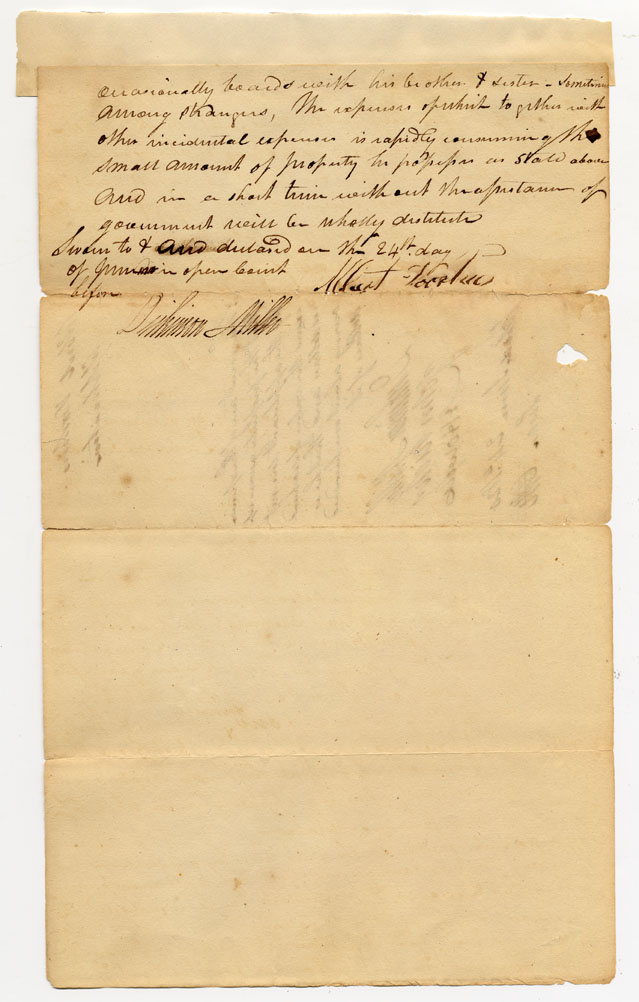 occasionally boards with his brother & sister - sometimes
among strangers, the expenses of which together with
other incidental expenses is rapidly consuming the
small amount of property he possesses as stated above
and in a short time without the assistance of
government will be wholly destitute
Sworn to & and declared on the 24th. day
of June in open Court Albert
before
Dickinson Miller